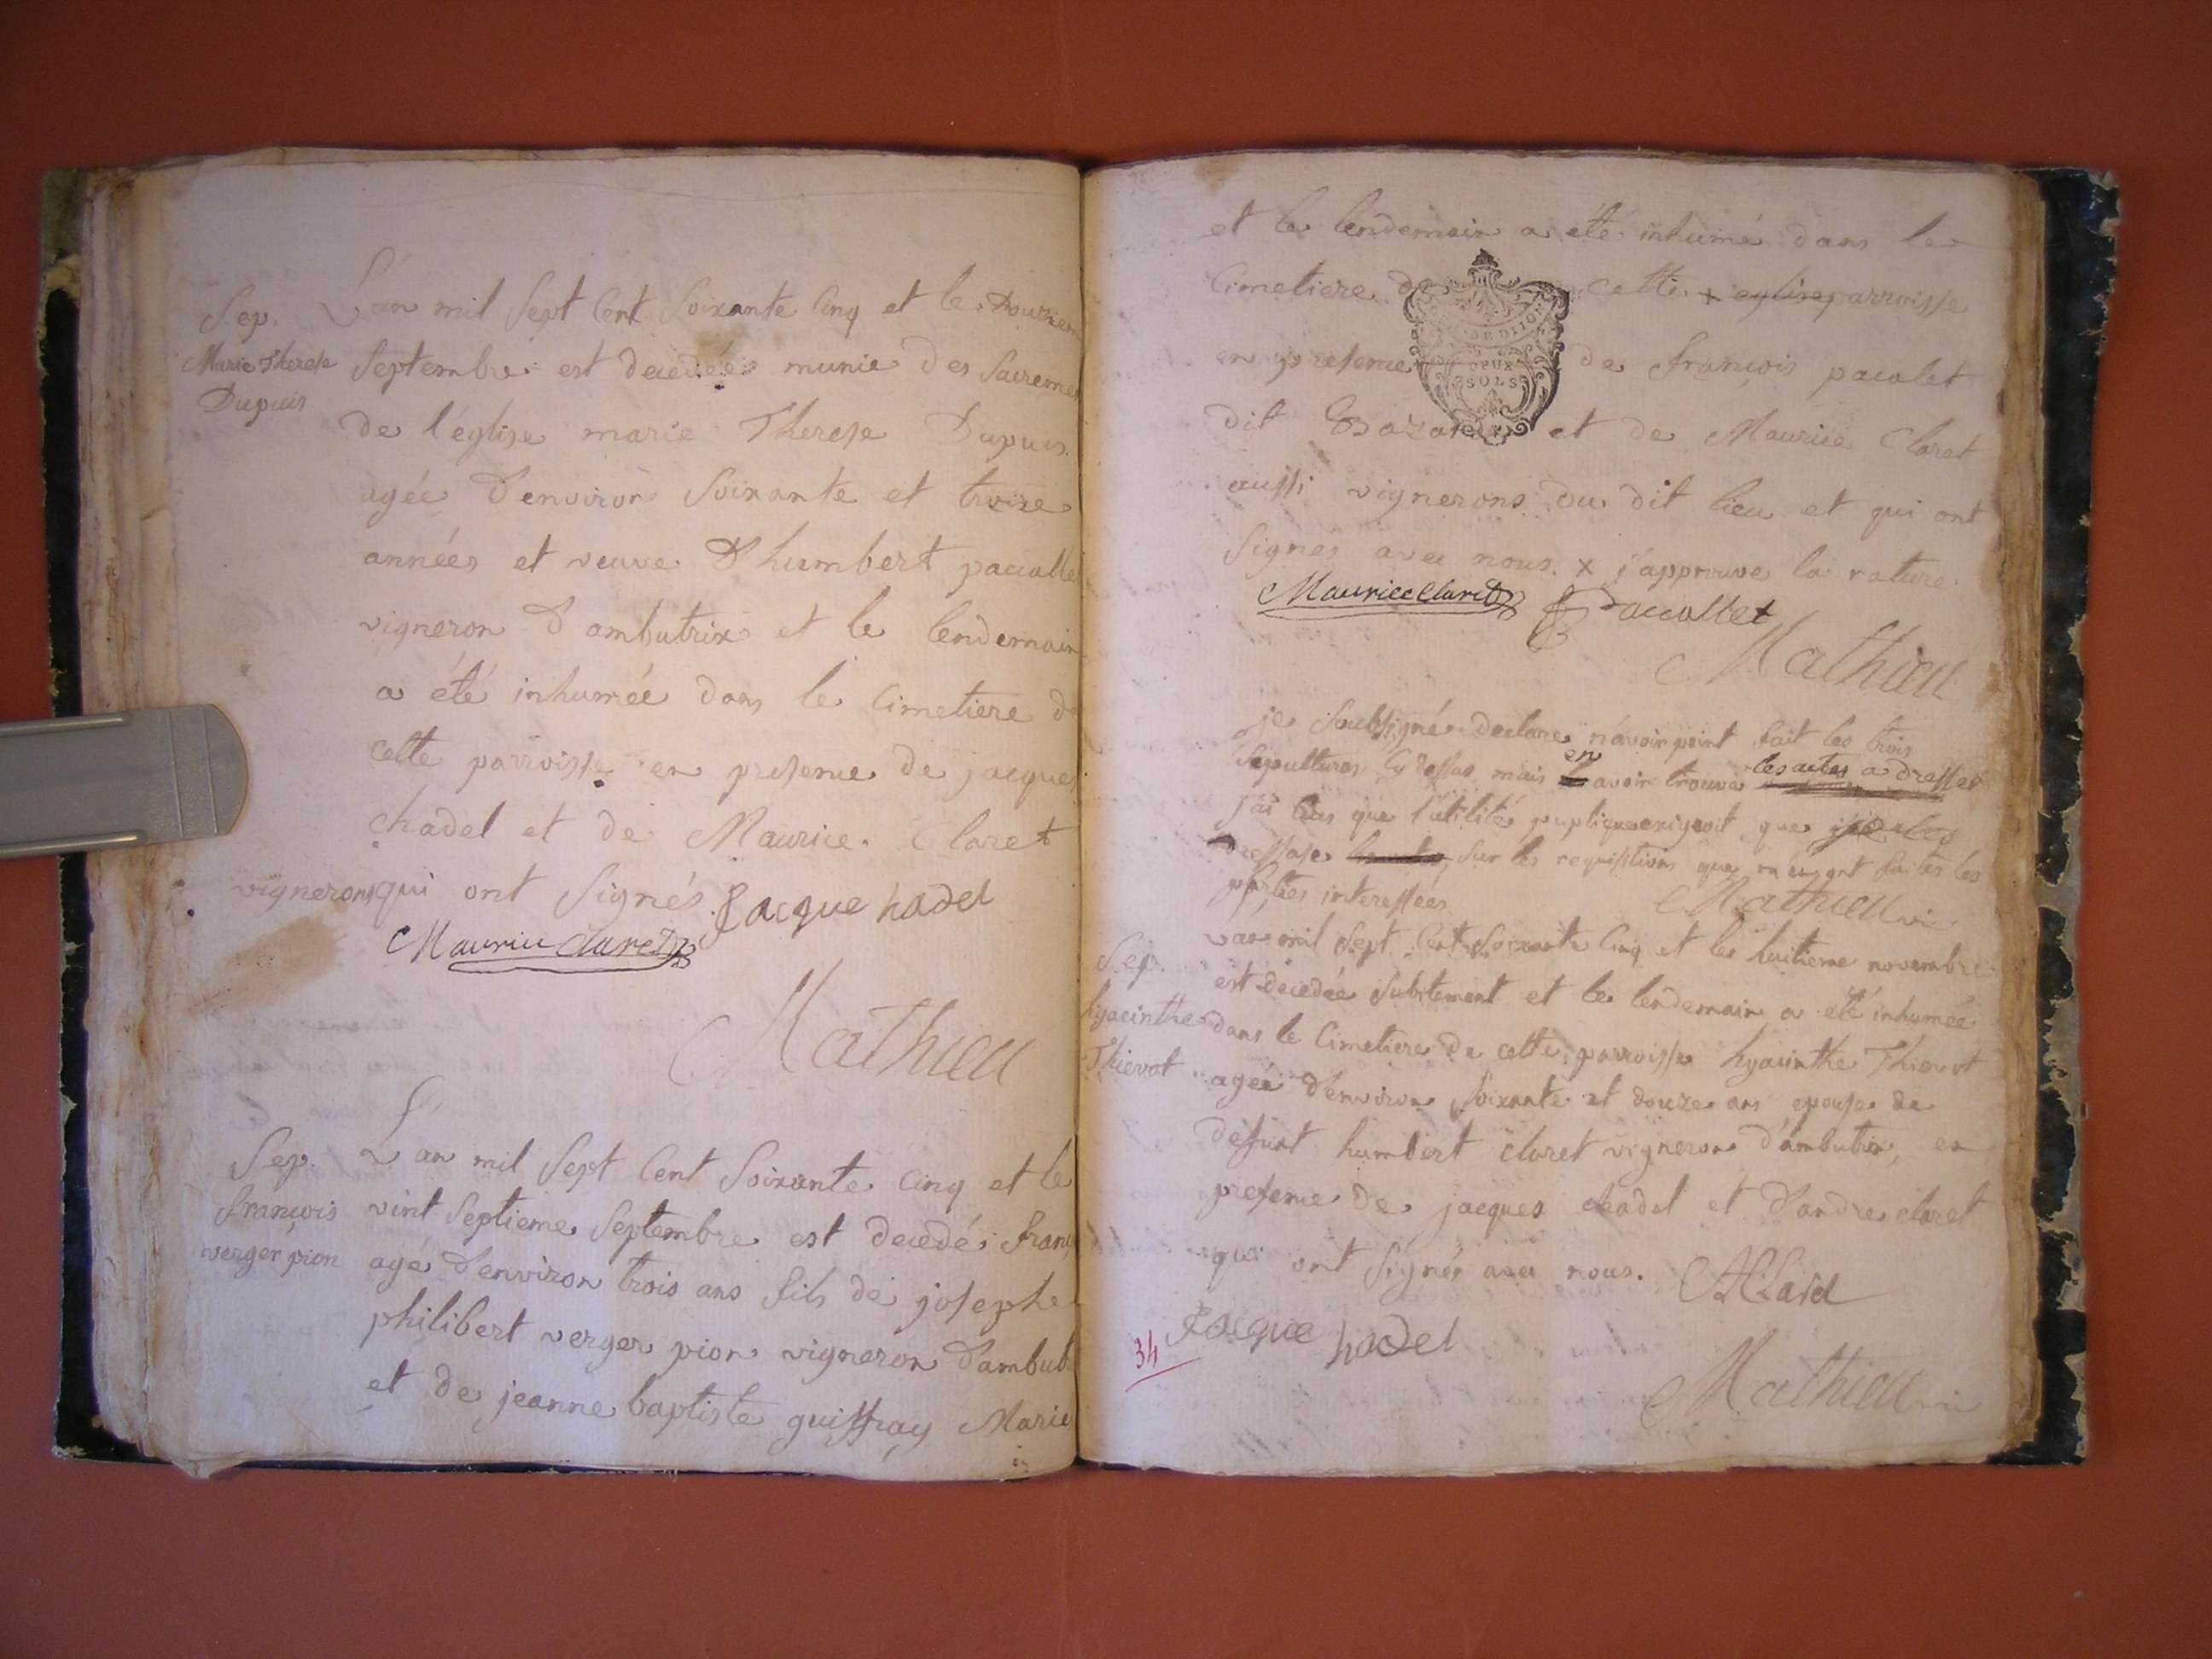 Sep.
Marie Therese
Dupuis
L'an mil sept cent soixante cinq et le Douzieme
septembre est decedée munie des sacremen
de l'église marie Therese Dupuis
agée d'environ soixante et treize
années et veuve D'humbert pacialle
vigneron d'ambutrix et le lendemain
a été inhumée dans le cimetiere de
cette parroisse en presence de jacques
chadel et de Maurice Claret
vignerons qui ont signés Jacque hadel
Maurice Claret
Mathieu
Sep.
françois
verger pion
L'an mil sept cent soixante cinq et le
vint septieme septembre est decedé franç
agé d'environ trois ans fils de josephe
philibert verger pion vigneron d'ambut
et de jeanne baptiste guiffray Marié
et le lendemain a été inhumé dans le
cimetiere de cette + eglise parroisse
en presence de françois pacolet
DE DIJON
DEUX
SOLS
dit et de Maurice Claret
aussi vignerons du dit lieu et qui ont
signés avec nous. x j'approuve la rature.
Maurice Claret Paccallet
Mathieu
je soubsigné declare n'avoir point fait les trois
sepultures cy dessus mais en avoir trouvé les actes a dresser
j'ai cru que l'utilité puplique exigeoit que je les
dressase sur les requisitions que m'en ont faites les
parties interessées Mathieu vic
Sep.
hyacinthe
Thievot
L'an mil sept cent soixante cinq et le huitieme novembre
est decedée subitement et le lendemain a été inhumée
dans le cimetiere de cette parroisse hyacinthe Thievot
agée d'environ soixante et douze ans epouse de
deffunt humbert claret vigneron d'ambutrix, en
presence de jacques chadel et d'andre claret
qui ont signés avec nous. A Claret
Jacque hadel
34
Mathieu vic